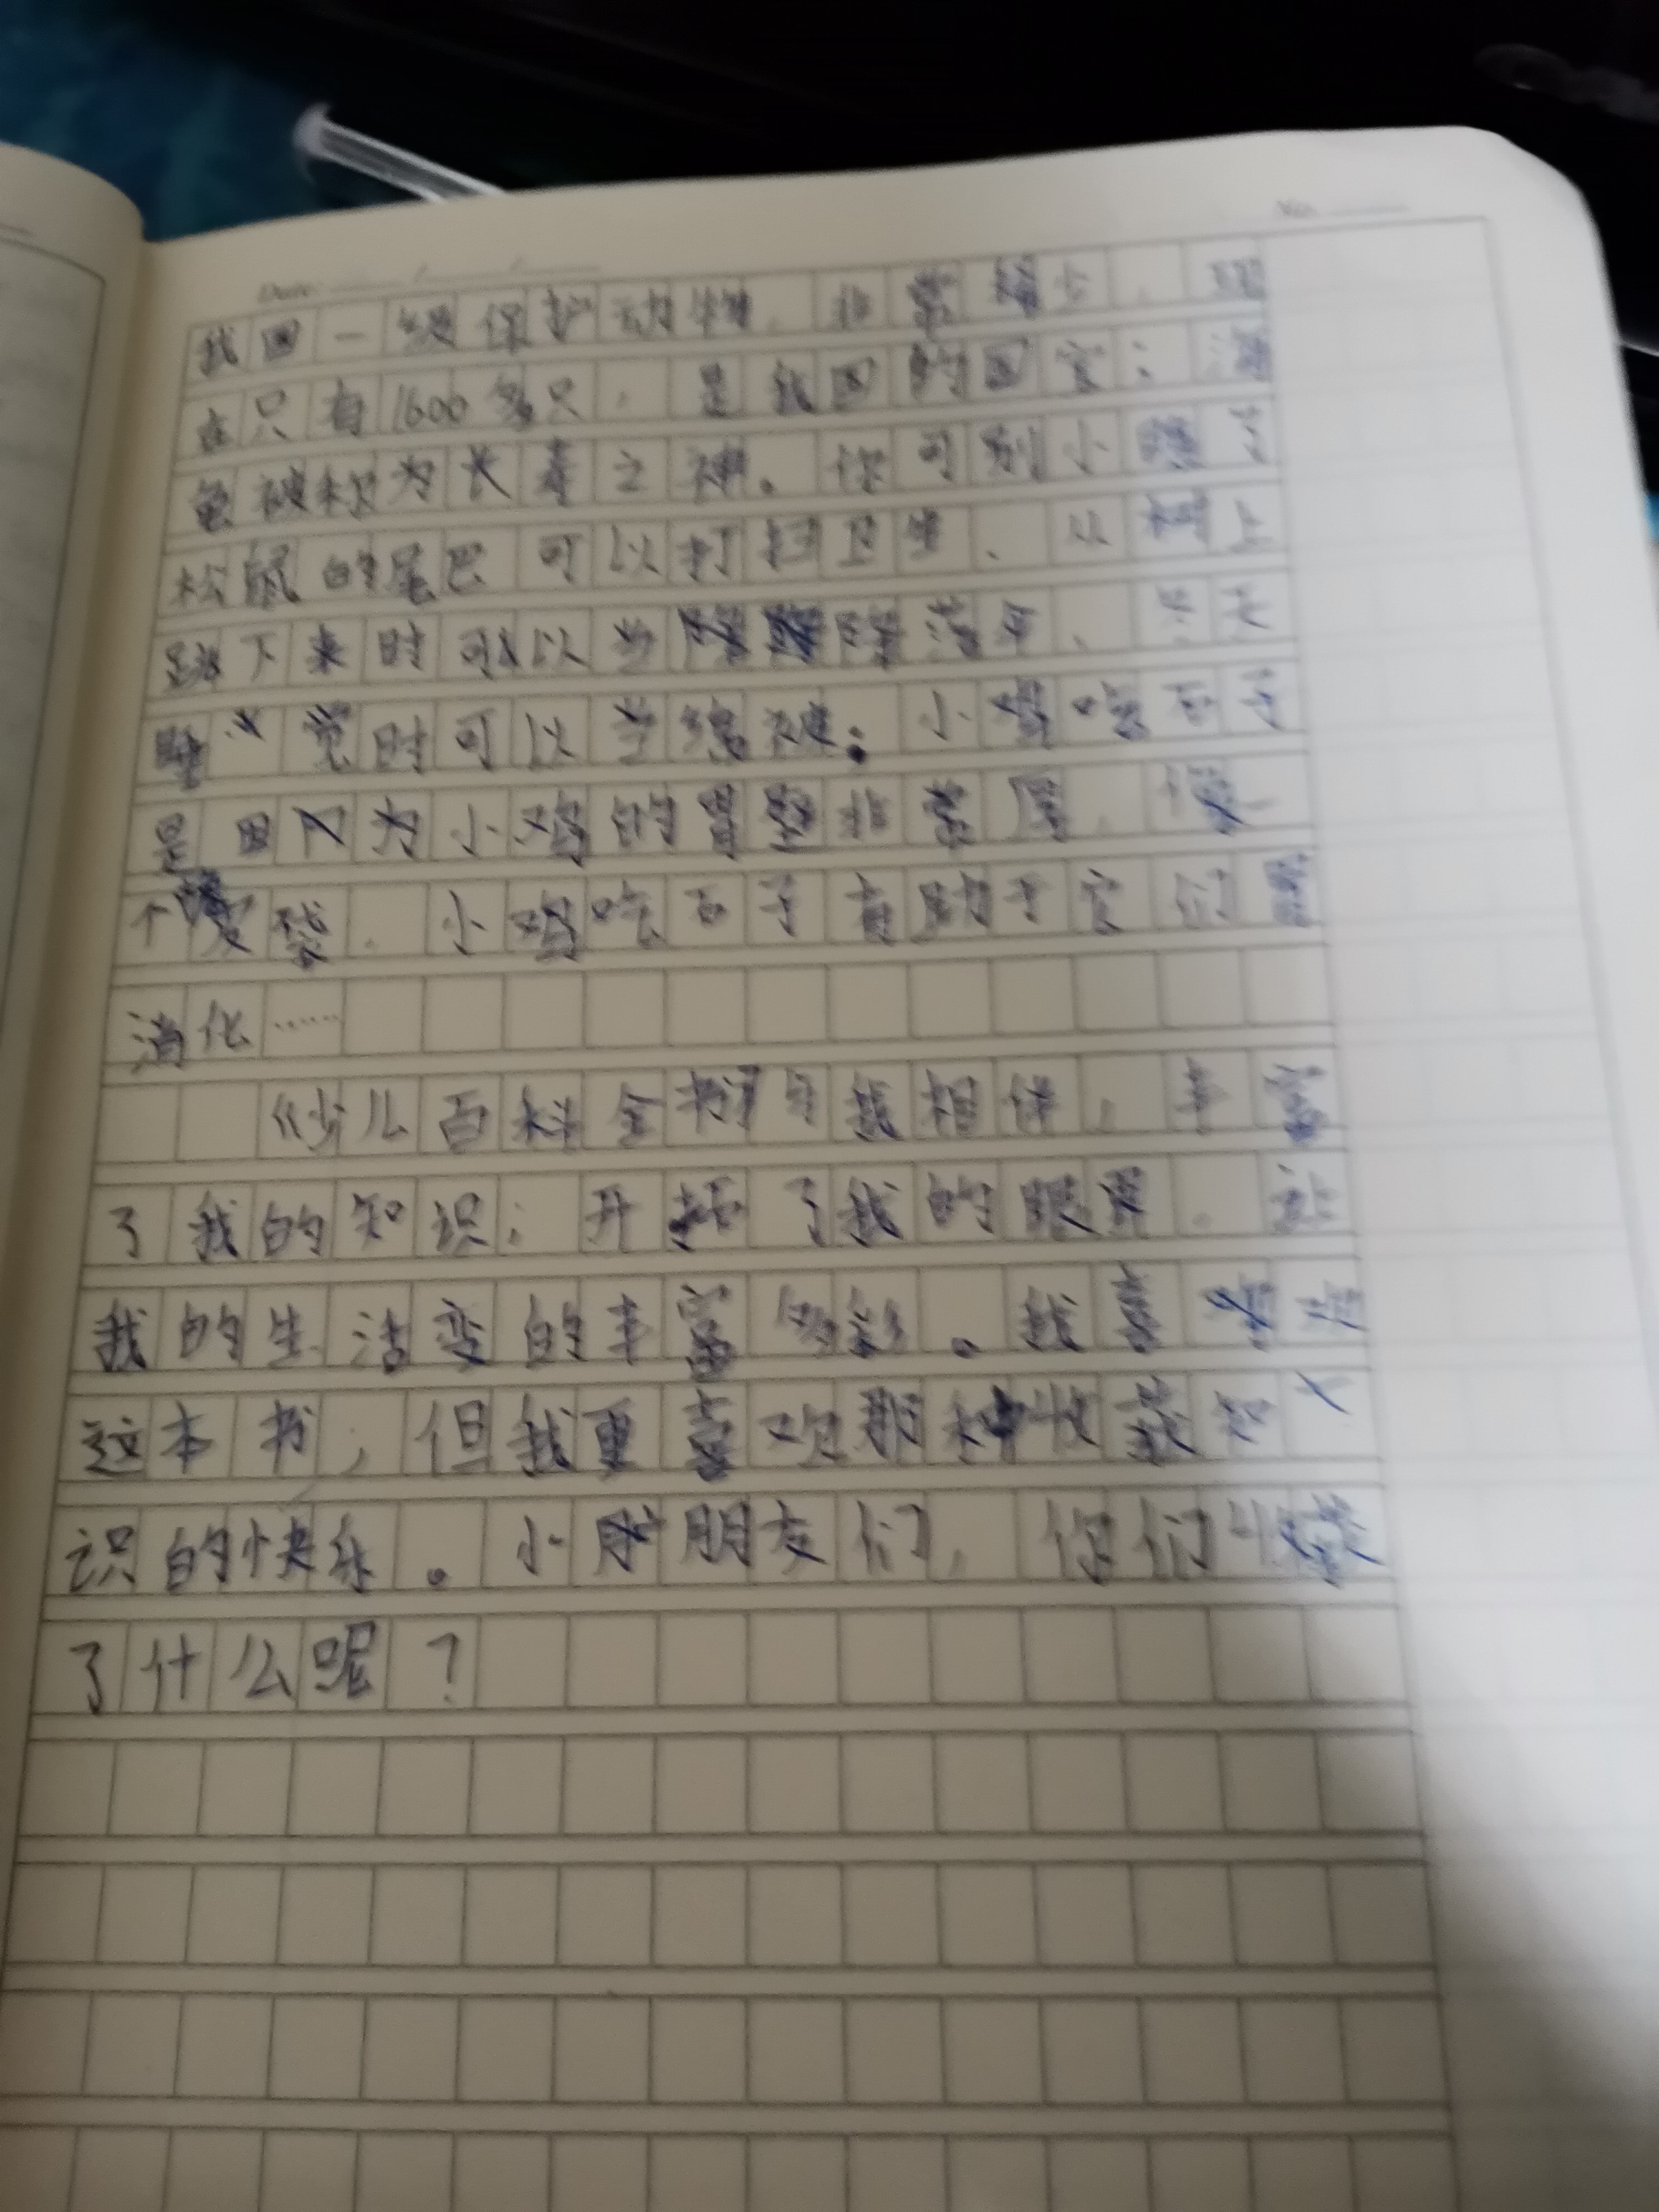 Date / /
No.
我国一级保护动物,非常稀少,现
在只有1600多只,是我国的国宝;海
龟被称为长寿之神。你可别小瞧了
松鼠的尾巴可以打扫卫生、从树上
跳下来时可以当降落伞、冬天
睡觉时可以当棉被;小鸡吃石子
是因为小鸡的胃壁非常厚,像
个 袋。小鸡吃石子有助于它们
消化……
《少儿百科全书》与我相伴,丰富
了我的知识;开拓了我的眼界。让
我的生活变的丰富多彩。我喜
这本书,但我更喜欢那种收获知
识的快乐。小朋友们,你们收获
了什么呢?